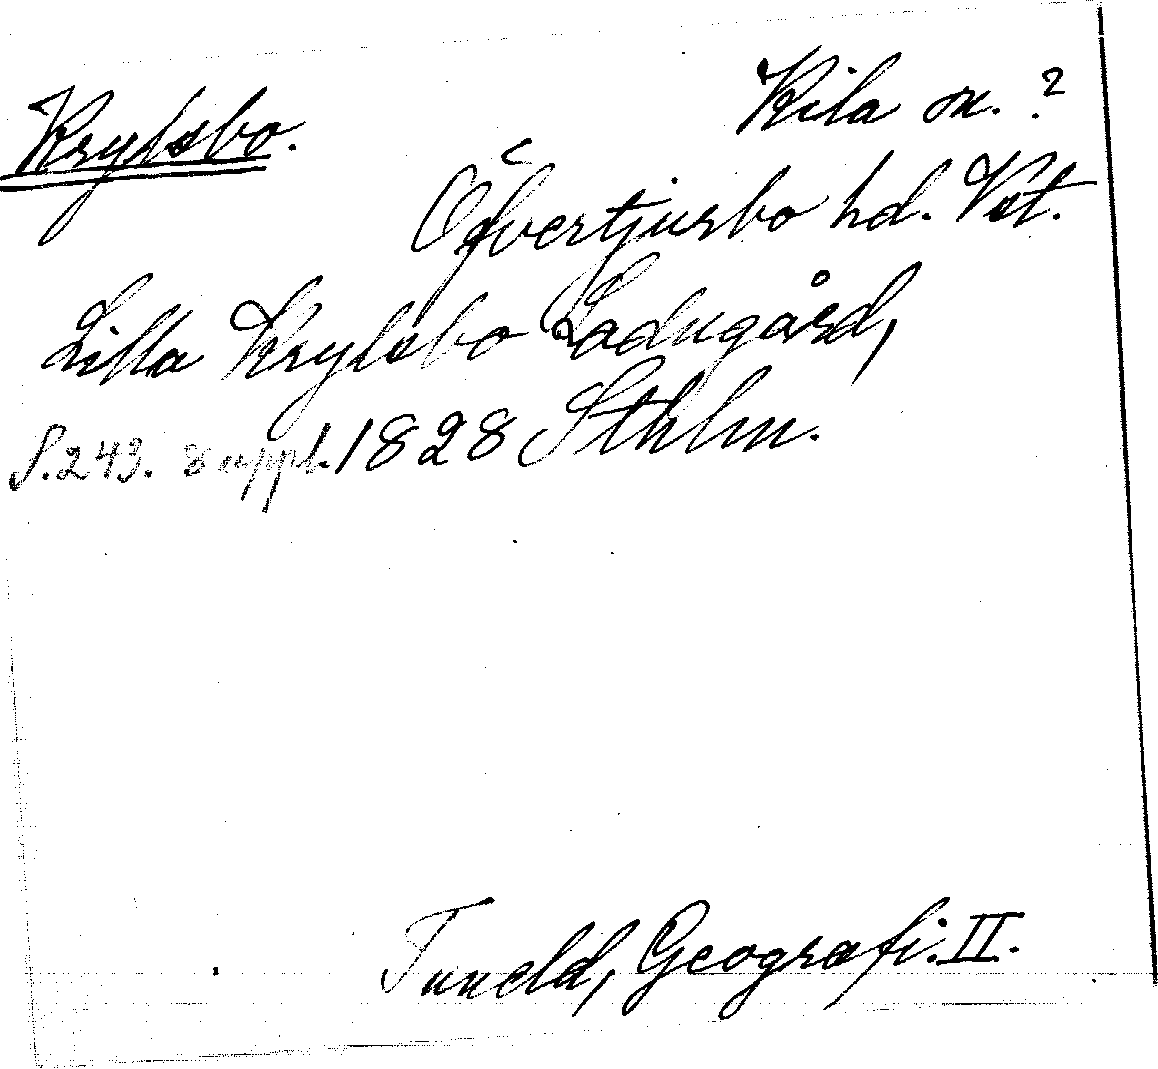 Krylsbo.
Kila sn. ?
Öfvertjurbo hd. Vst.
Lilla Krylsbo Ladugård,
S. 243. 8 uppl. 1828 Sthlm.
Tuneld, Geografi. II.